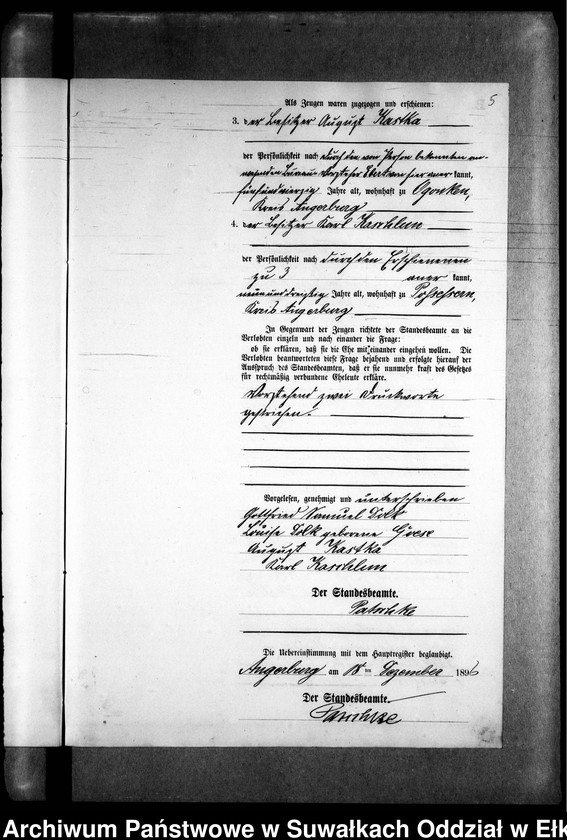 5
Als Zeugen waren zugezogen und erschienen:
3. der Besitzer August Kastka
der Persönlichkeit nach durch den von Person bekannten an-
wesenden Bureau-Vorsteher von hier aner kannt,
fünfundvierzig Jahre alt, wohnhaft zu Ogonken,
Kreis Angerburg
4. der Besitzer Karl Kaschlun
der Persönlichkeit nach durch den Erschienenen
zu 3 aner kannt,
neununddreißig Jahre alt, wohnhaft zu Possessern,
Kreis Angerburg
In Gegenwart der Zeugen richtete der Standesbeamte an die
Verlobten einzeln und nach einander die Frage:
ob sie erklären, daß sie die Ehe mit einander eingehen wollen. Die
Verlobten beantworteten diese Frage bejahend und erfolgte hierauf der
Ausspruch des Standesbeamten, daß er sie nunmehr kraft des Gesetzes
für rechtmäßig verbundene Eheleute erkläre.
Vorstehend zwei Druckworte
gestrichen.
Vorgelesen, genehmigt und unterschrieben
Gottfried Samuel Dolk
Louise Dolk geborene
August Kastka
Karl Kaschlun
Der Standesbeamte.
Die Uebereinstimmung mit dem Hauptregister beglaubigt.
Angerburg am 18 ten Dezember 1896
Der Standesbeamte.
Archiwum Państwowe w Suwałkach Oddział w Ełk